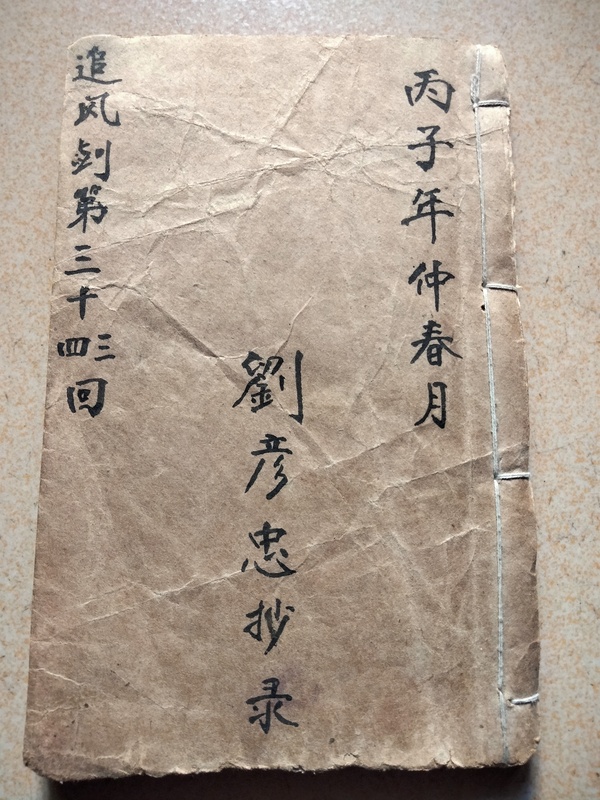 丙子年仲春月
劉彦忠抄录
追风剑第三十三四回